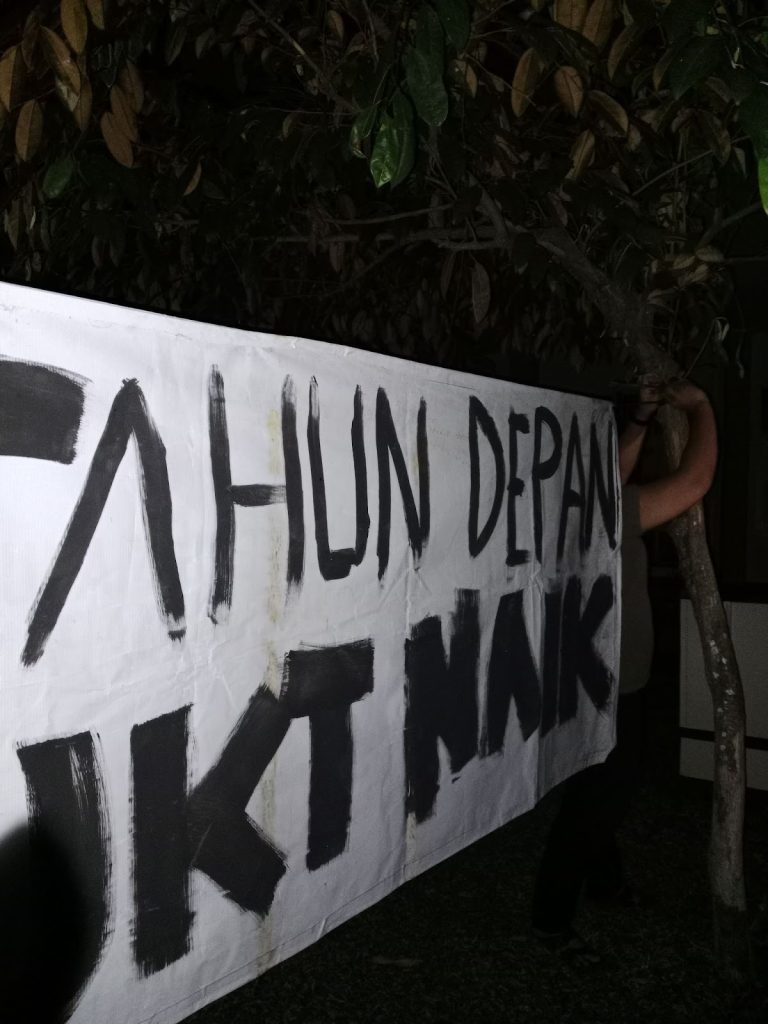 TAHUN DEPAN
UKT NAIK